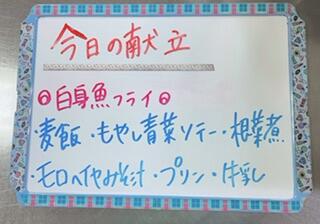 今日の献立
◎白身魚フライ◎
・麦飯・もやし青菜ソテー・根菜煮
・モロヘイヤみそ汁・プリン・牛乳